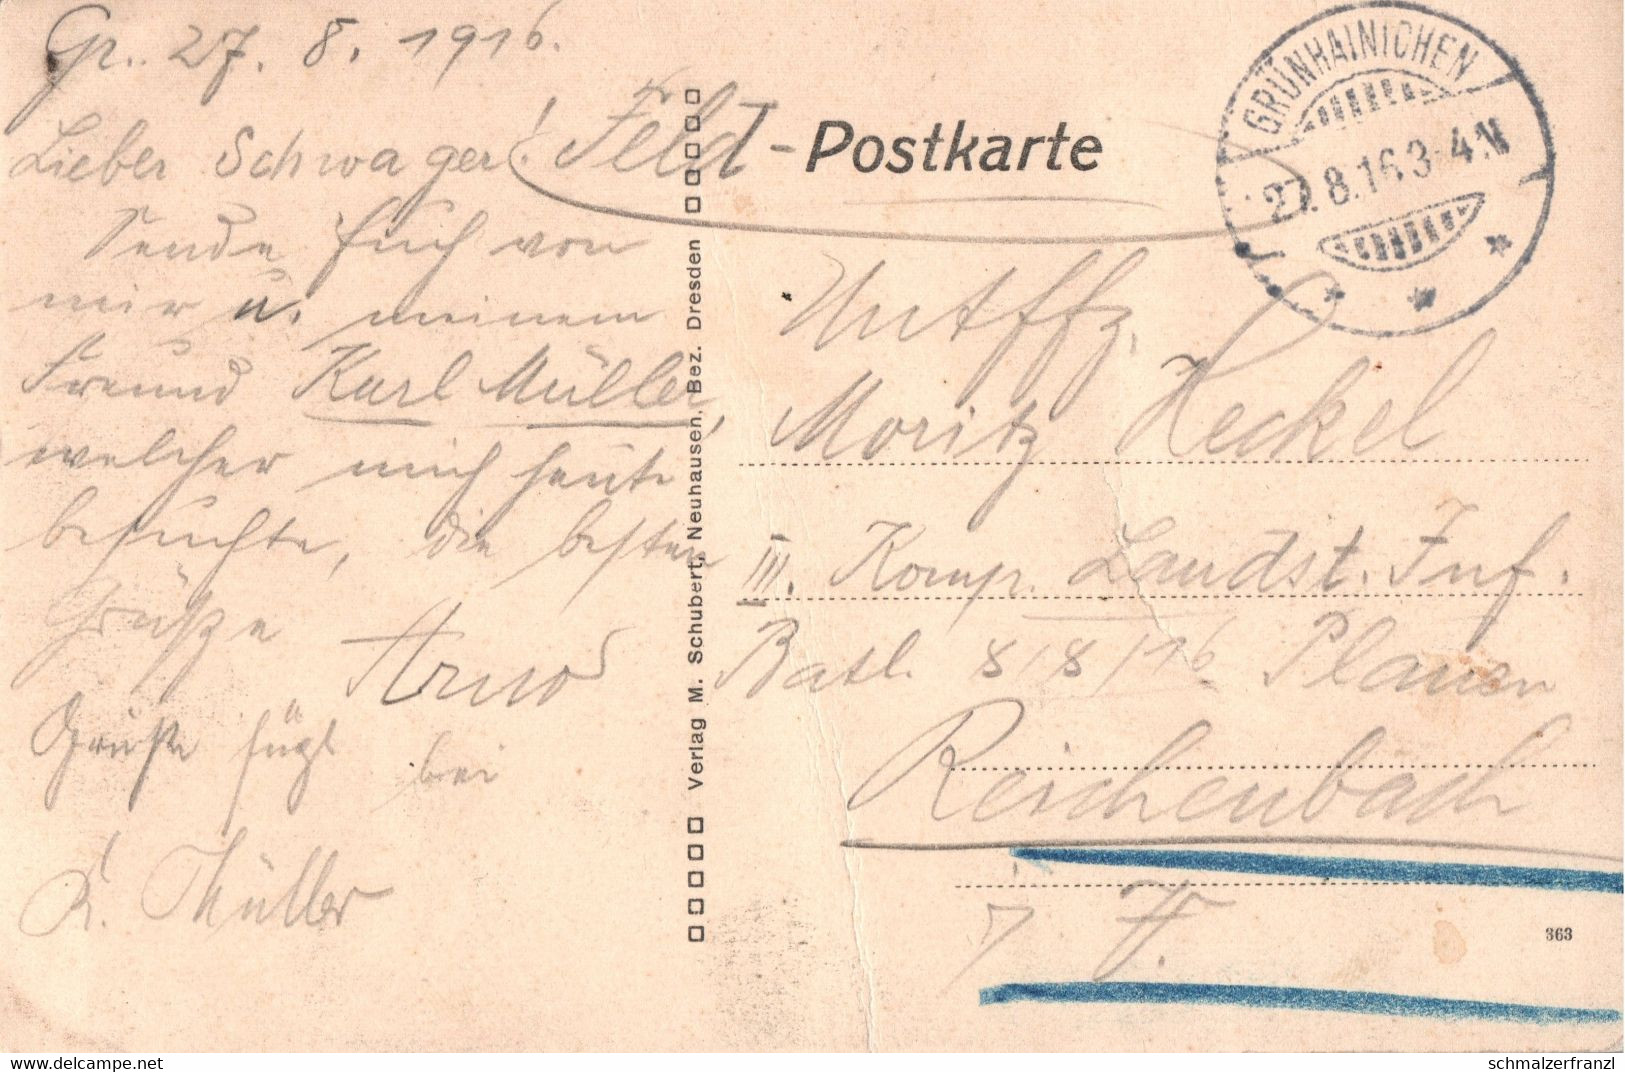 Gr. 27. 8. 1916.
Lieber Schwager!
Sende Euch von
mir u. meinem
Freund Karl Müller,
welcher mich heute
besuchte, die besten
Grüße
Arno
Grüße fügt
bei
K. Müller
Feld-Postkarte
GRÜNHAINICHEN
27.8.16.3-4.N
Verlag M. Schubert, Neuhausen, Bez. Dresden
Untffz.
Moritz Heckel
III. Komp. Landst. Inf.
Batl. 8/8/16 Plauen
Reichenbach
363
delcampe.net
schmalzerfranzl